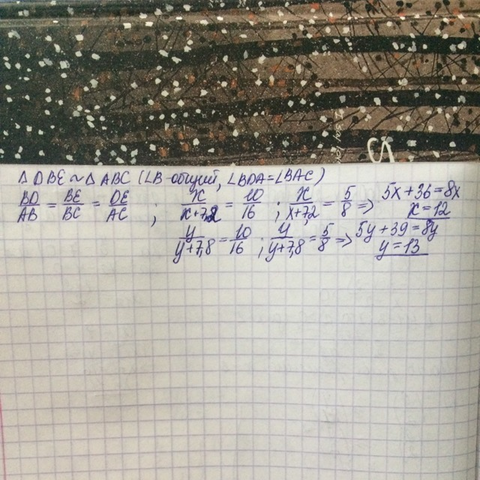 Δ DBE ~ Δ ABC (∠B-общий, ∠BDA=∠BAC)
BD/AB = BE/BC = DE/AC , x/x+7,2 = 10/16 ; x/x+7,2 = 5/8 => 5x+36=8x
x=12
y/y+7,8 = 10/16 ; y/y+7,8 = 5/8 => 5y+39=8y
y=13